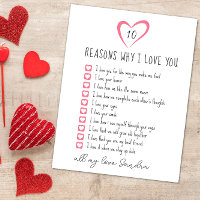 10
REASONS WHY I LOVE YOU
I love you for the way you make me feel
I love your humor
I love how we like the same music
I love how we complete each other's thoughts
I love your eyes
I love your smile
I love how I see myself through your eyes
I love that we will grow old together
I love that you are my best friend
I love it when we stay up late
all my love Sandra